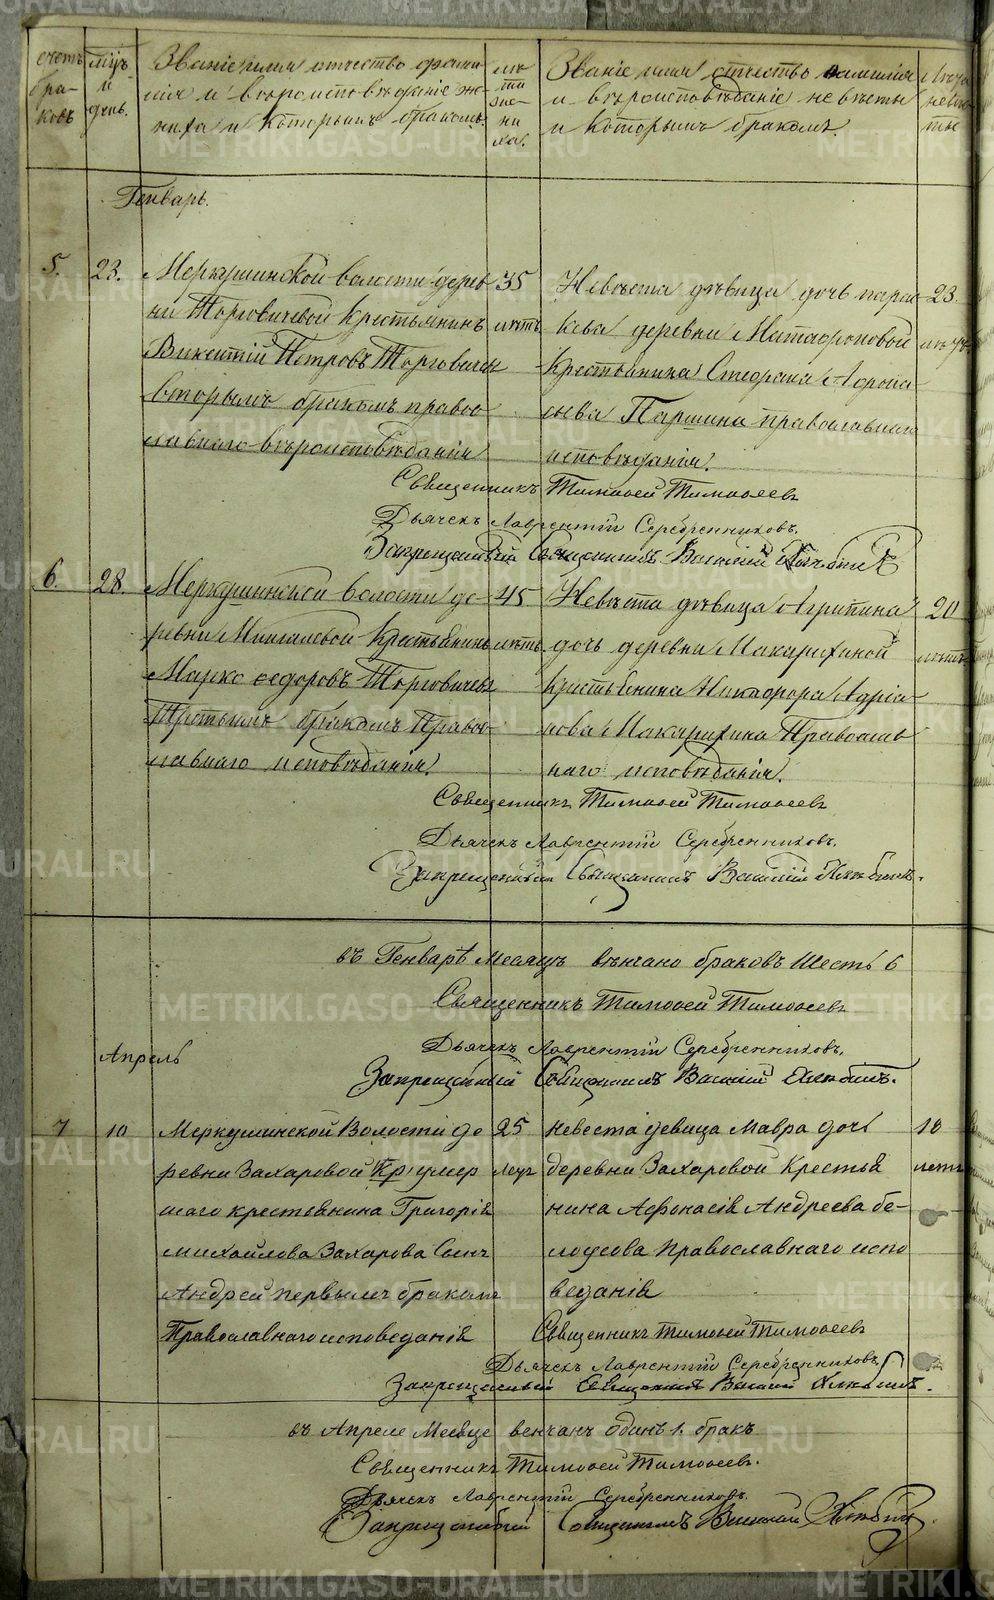 счетъ бра- ковъ
мцъ и день.
Званіе имя отчество фами-
лія и вѣроисповѣданіе же-
ниха и которымъ бракомъ.
лѣ та же- ни ха.
Званіе имя отчество фамилія
и вѣроисповѣданіе невѣсты
и которымъ бракомъ.
Лѣта невѣ- сты
Генварь.
5. 23.
Меркушинской волости дерев
ни Торговичевой Крестьянинъ
Викентій Петровъ Торговичевъ
вторымъ бракомъ право-
лавнаго вѣроисповѣданія
35 лѣтъ
Невѣста дѣвица дочь Парас
кева деревни Матафоновой
Крестьянина Стефана Афона-
сьева Паршина православнаго
исповѣданія.
23 лѣтъ
Священникъ Тимоѳей Тимоѳеевъ
Дьячекъ Лаврентій Серебренниковъ.
Запрещенный Священникъ Василій
6. 28.
Меркушинской волости де-
ревни Мингалевой Крестьянинъ
Марко Ѳедоровъ Торговичевъ
Третьимъ бракомъ Правос-
лавнаго исповѣданія.
45 лѣтъ
Невѣста дѣвица Агрипина
дочь деревни Макарихиной
Крестьянина Никифора Адріа-
нова Макарихина Православ
наго исповѣданія.
20 лѣтъ
Священникъ Тимоѳей Тимоѳеевъ
Дьячекъ Лаврентій Серебренниковъ.
Запрещенный Священникъ Василій
въ Генварѣ Месяцѣ вѣнчано браковъ Шесть 6
Священникъ Тимоѳей Тимоѳеевъ
Дьячекъ Лаврентій Серебренниковъ.
Запрещенный Священникъ Василій
Апрель
7 10
Меркушинской Волости де
ревни Захаровой Кр умер
шаго крестьянина Григорія
михайлова Захарова Сынъ
Андрей первымъ бракомъ
Православнаго исповеданія
25 летъ
Невеста девица Мавра дочь
деревни Захаровой Крестья
нина Афонасія Андреева бе-
лоусова Православнаго испо
веданія
18 летъ
Священникъ Тимоѳей Тимоѳеевъ
Дьячекъ Лаврентій Серебренниковъ.
Запрещенный Священникъ Василій
въ Апреле Месяце венчанъ Одинъ 1. бракъ
Священникъ Тимоѳей Тимоѳеевъ.
Дьячекъ Лаврентій Серебренниковъ.
Запрещенный Священникъ Василій
METRIKI.GASO-URAL.RU